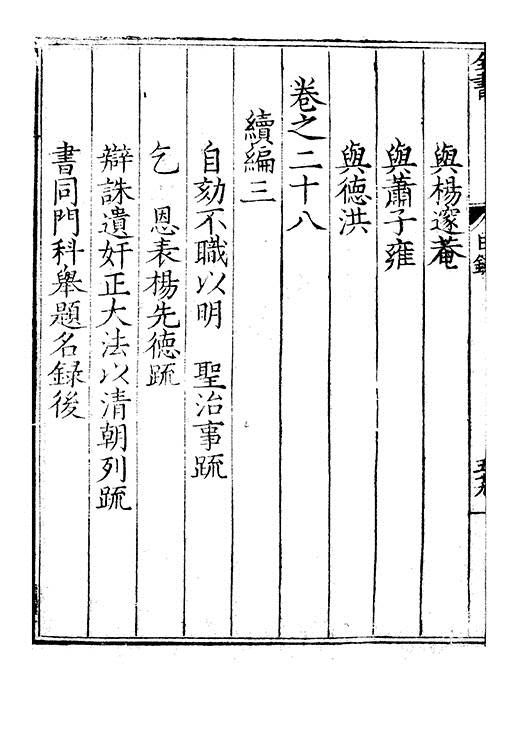 全書
目錄
與楊邃菴
與蕭子雍
與德洪
卷之二十八
續編三
自劾不職以明　聖治事疏
乞　恩表楊先德疏
辯誅遺奸正大法以清朝列疏
書同門科舉題名錄後